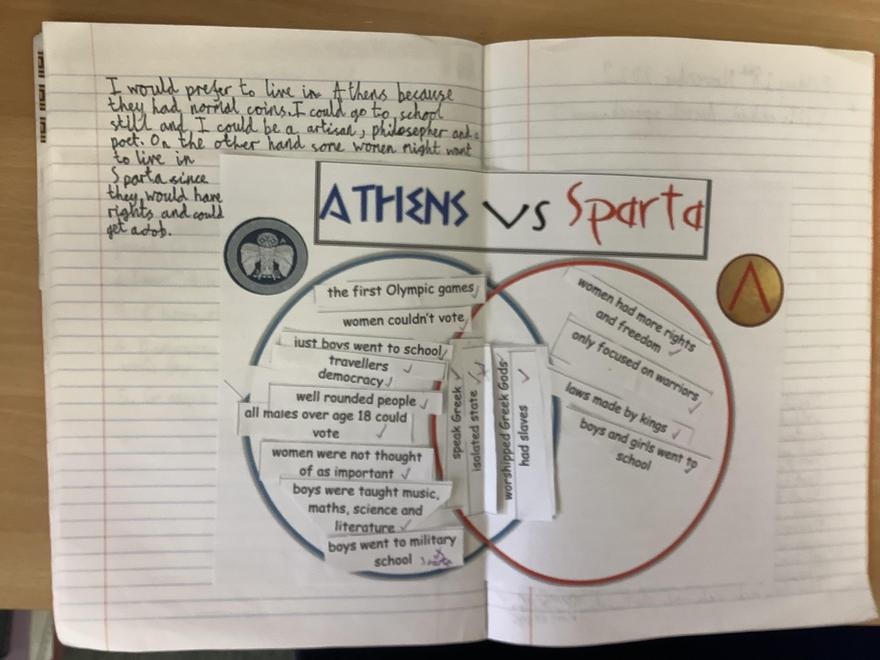 I would prefer to live in Athens because
they had normal coins. I could go to school
still and I could be a artisan, philosepher and a
poet. On the other hand some women might want
to live in
Sparta since
they would have
rights and could
get a job.
ATHENS vs Sparta
the first Olympic games
women couldn't vote
just boys went to school
travellers
democracy
well rounded people
all males over age 18 could
vote
women were not thought
of as important
boys were taught music,
maths, science and
literature
boys went to military
school
Sparta
speak Greek
isolated state
worshipped Greek Gods
had slaves
women had more rights
and freedom
only focused on warriors
laws made by kings
boys and girls went to
school
Λ